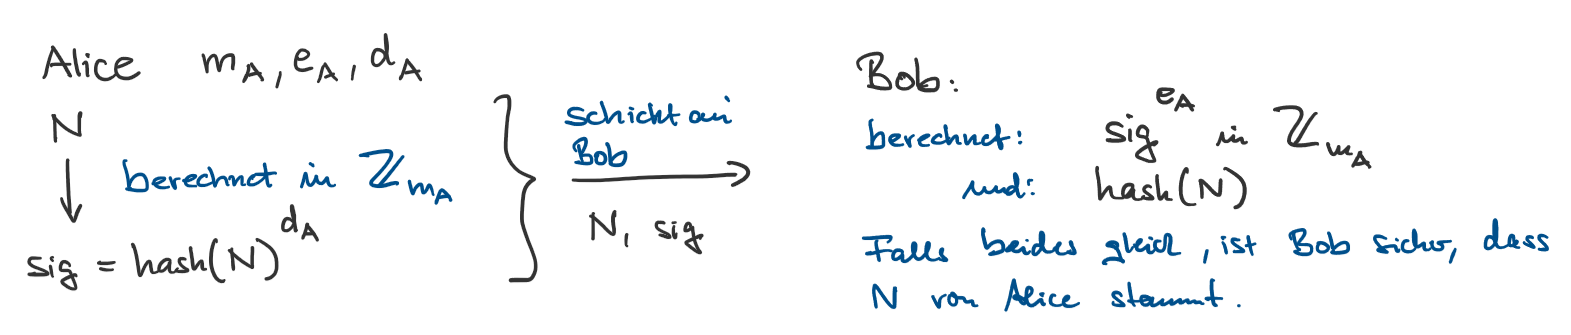 Alice m_A, e_A, d_A
N
↓ berechnet in ℤ_{m_A}
sig = hash(N)^{d_A}
schickt an
Bob
N, sig
Bob:
berechnet: sig^{e_A} in ℤ_{m_A}
und: hash(N)
Falls beides gleich, ist Bob sicher, dass
N von Alice stammt.